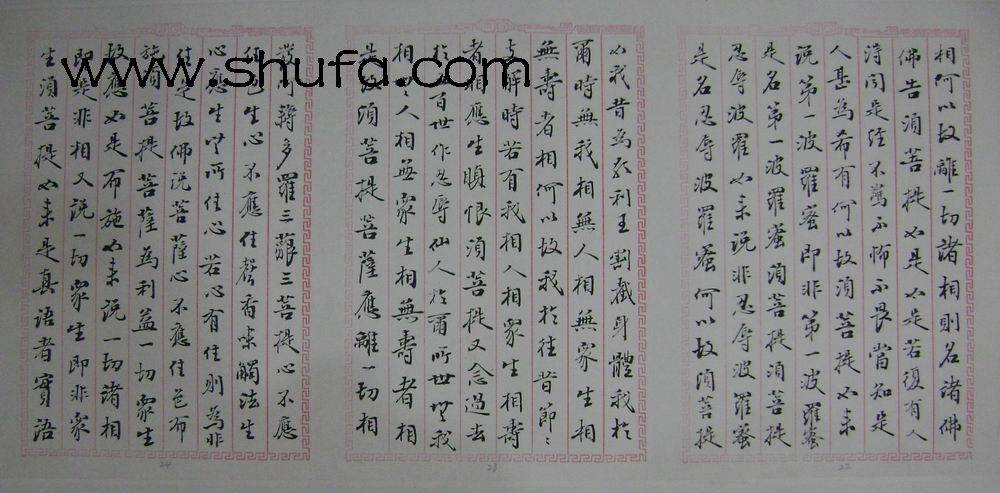 相何以故離一切諸相則名諸佛
佛告須菩提如是如是若復有人
得聞是經不驚不怖不畏當知是
人甚為希有何以故須菩提如來
說第一波羅蜜即非第一波羅蜜
是名第一波羅蜜須菩提須菩提
忍辱波羅如來說非忍辱波羅蜜
是名忍辱波羅蜜何以故須菩提
22
如我昔為歌利王割截身體我於
爾時無我相無人相無眾生相
無壽者相何以故我於往昔節々
支解時若有我相人相眾生相壽
者相應生瞋恨須菩提又念過去
於五百世作忍辱仙人於爾所世無我
相無人相無眾生相無壽者相
是故須菩提菩薩應離一切相
23
發阿耨多羅三藐三菩提心不應
住色生心不應住聲香味觸法生
心應生無所住心若心有住則為非
住是故佛說菩薩心不應住色布
施須菩提菩薩為利益一切眾生
故應如是布施如來說一切諸相
即是非相又說一切眾生即非眾
生須菩提如來是真語者實語
24
www.shufa.com